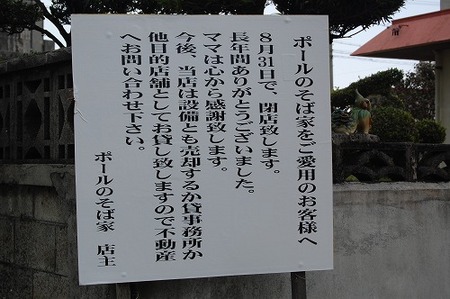 ポールのそば家をご愛用のお客様へ
8月31日で、閉店致します。
長年間ありがとうございました。
ママは心から感謝致します。
今後、当店は設備とも売却するか貸事務所か
他目的店舗としてお貸し致しますので不動産
へお問い合わせ下さい。
ポールのそば家 店主